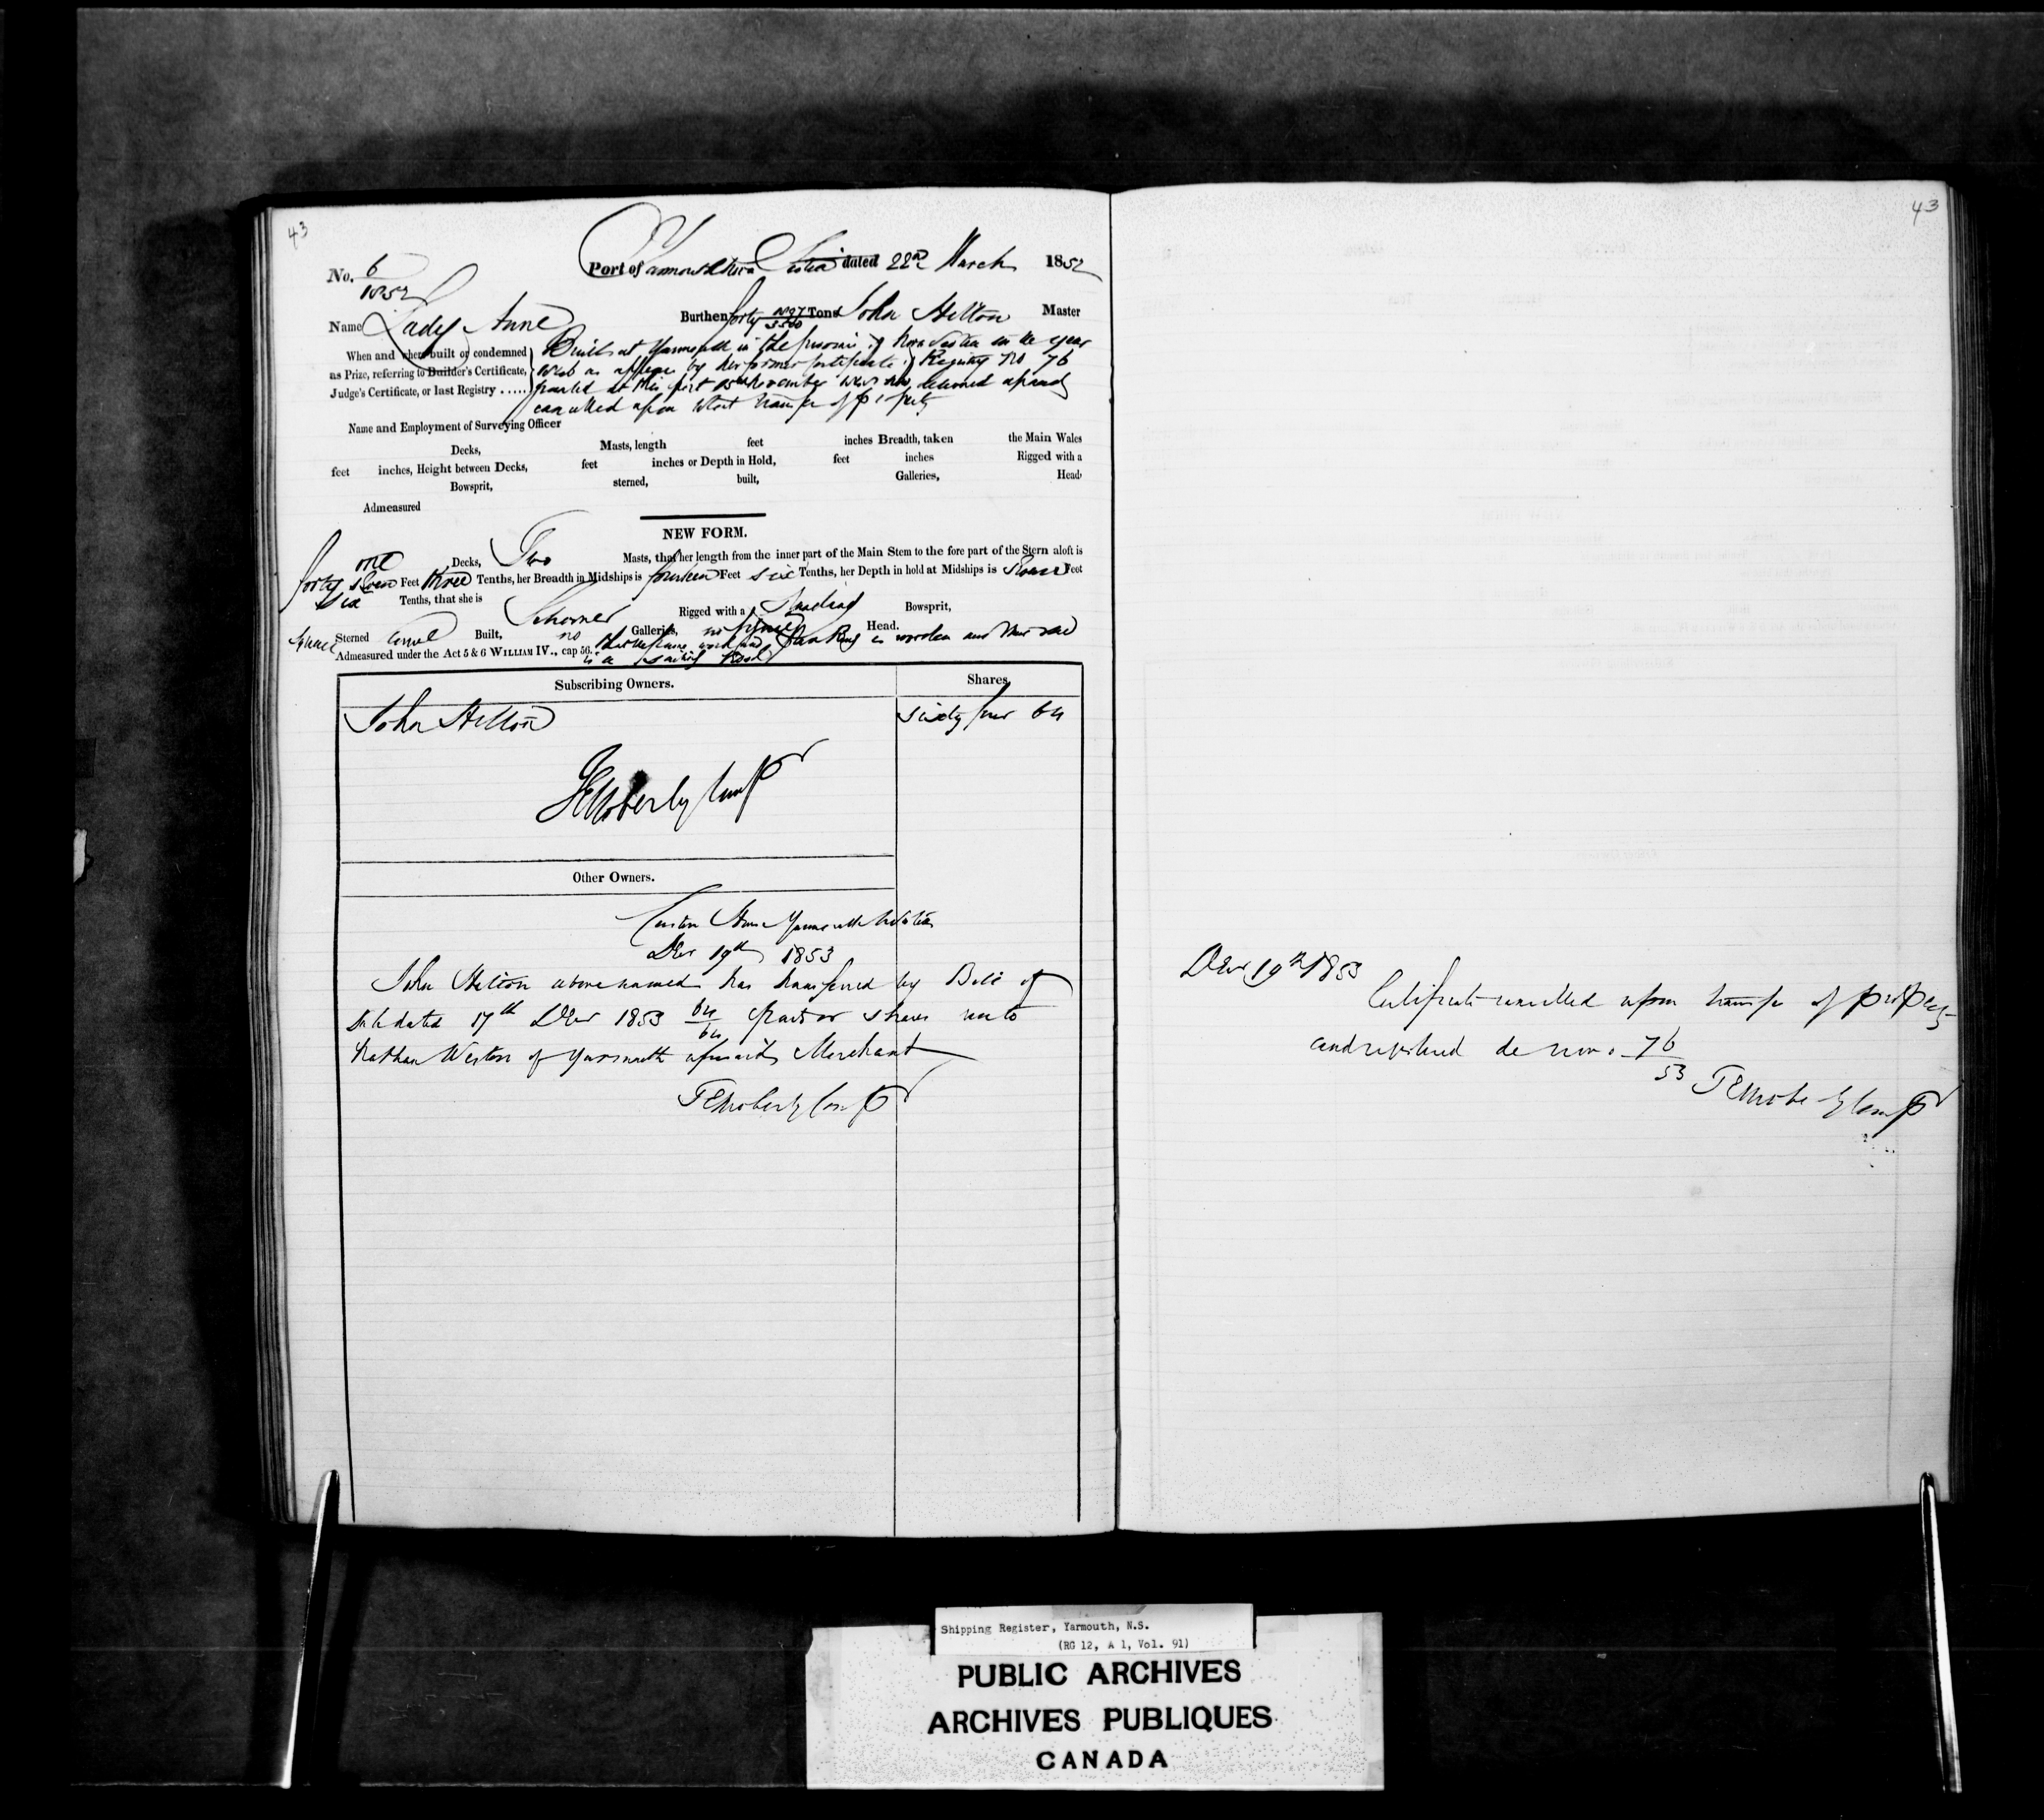 43
No. 6
1852
Port of Yarmouth Nova Scotia dated 22nd March 1852
Name Lady Anne Burthen forty Tons John Hilton Master
When and where built or condemned
as Prize, referring to Builder's Certificate,
Judge's Certificate, or last Registry .....
Built at Yarmouth in the province of Nova Scotia in the year
as appears by her former Certificate of Registry No 76
granted at this port November now delivered up and
cancelled upon transfer of property
Name and Employment of Surveying Officer
Decks, Masts, length feet inches Breadth, taken the Main Wales
feet inches, Height between Decks, feet inches or Depth in Hold, feet inches Rigged with a
Bowsprit, sterned, built, Galleries, Head
Admeasured
NEW FORM.
one Decks, Two Masts, that her length from the inner part of the Main Stem to the fore part of the Stern aloft is
forty seven Feet three Tenths, her Breadth in Midships is fourteen Feet six Tenths, her Depth in hold at Midships is Feet
six Tenths, that she is Schooner Rigged with a Standing Bowsprit,
Square Sterned Carvel Built, no Galleries, no figure Head.
Admeasured under the Act 5 & 6 WILLIAM IV., cap 56. that the frame work and planking is wooden and that she
is a sailing vessel
Subscribing Owners. Shares
John Hilton sixty four 64
T E Moberly Comp
Other Owners.
Custom House Yarmouth
Decr 19th 1853
John Hilton above named has transferred by Bill of
Sale dated 17th Decr 1853 64/64 parts or shares unto
Nathan Weston of Yarmouth aforesaid Merchant
T E Moberly Comp
43
Decr 19th 1853
Certificate cancelled upon transfer of property
and registered de novo 76
53
T E Moberly Comp
Shipping Register, Yarmouth, N.S.
(RG 12, A 1, Vol. 91)
PUBLIC ARCHIVES
ARCHIVES PUBLIQUES
CANADA